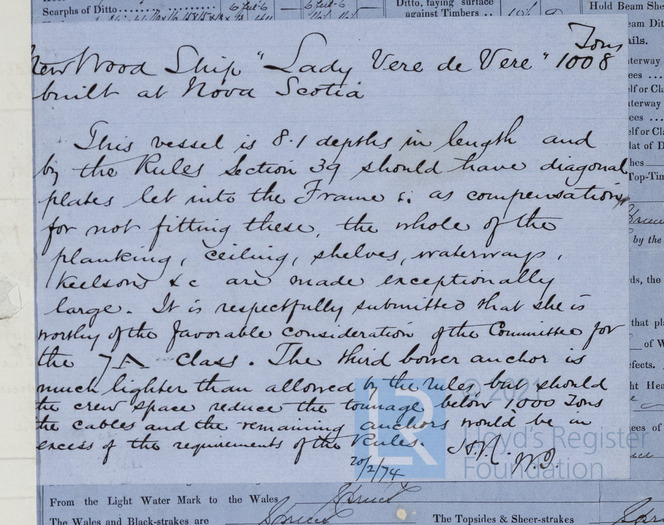 Scarphs of Ditto
Ditto, faying surface
against Timbers
Hold Beam
Tons
New Wood Ship "Lady Vere de Vere" 1008
built at Nova Scotia
This vessel is 8.1 depths in length and
by the Rules Section 39 should have diagonal
plates let into the Frame &; as compensation
for not fitting these, the whole of the
planking, ceiling, shelves, waterways,
Keelsons &c are made exceptionally
large. It is respectfully submitted that she is
worthy of the favorable consideration of the Committee for
the 7A class. The third bower anchor is
much lighter than allowed by the rules but should
the crew space reduce the tonnage below 1000 Tons
the cables and the remaining anchors would be in
excess of the requirements of the Rules.
20/2/74
LR
Lloyd's Register
Foundation
From the Light Water Mark to the Wales
Spruce
The Wales and Black-strakes are
Spruce
The Topsides & Sheer-strakes